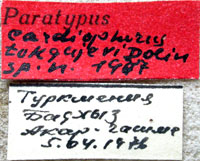 Paratypus
Cardiophorus
Dolin
sp. n. 1987
Туркмения
Бадхыз
Акар-чешме
5.04.1976